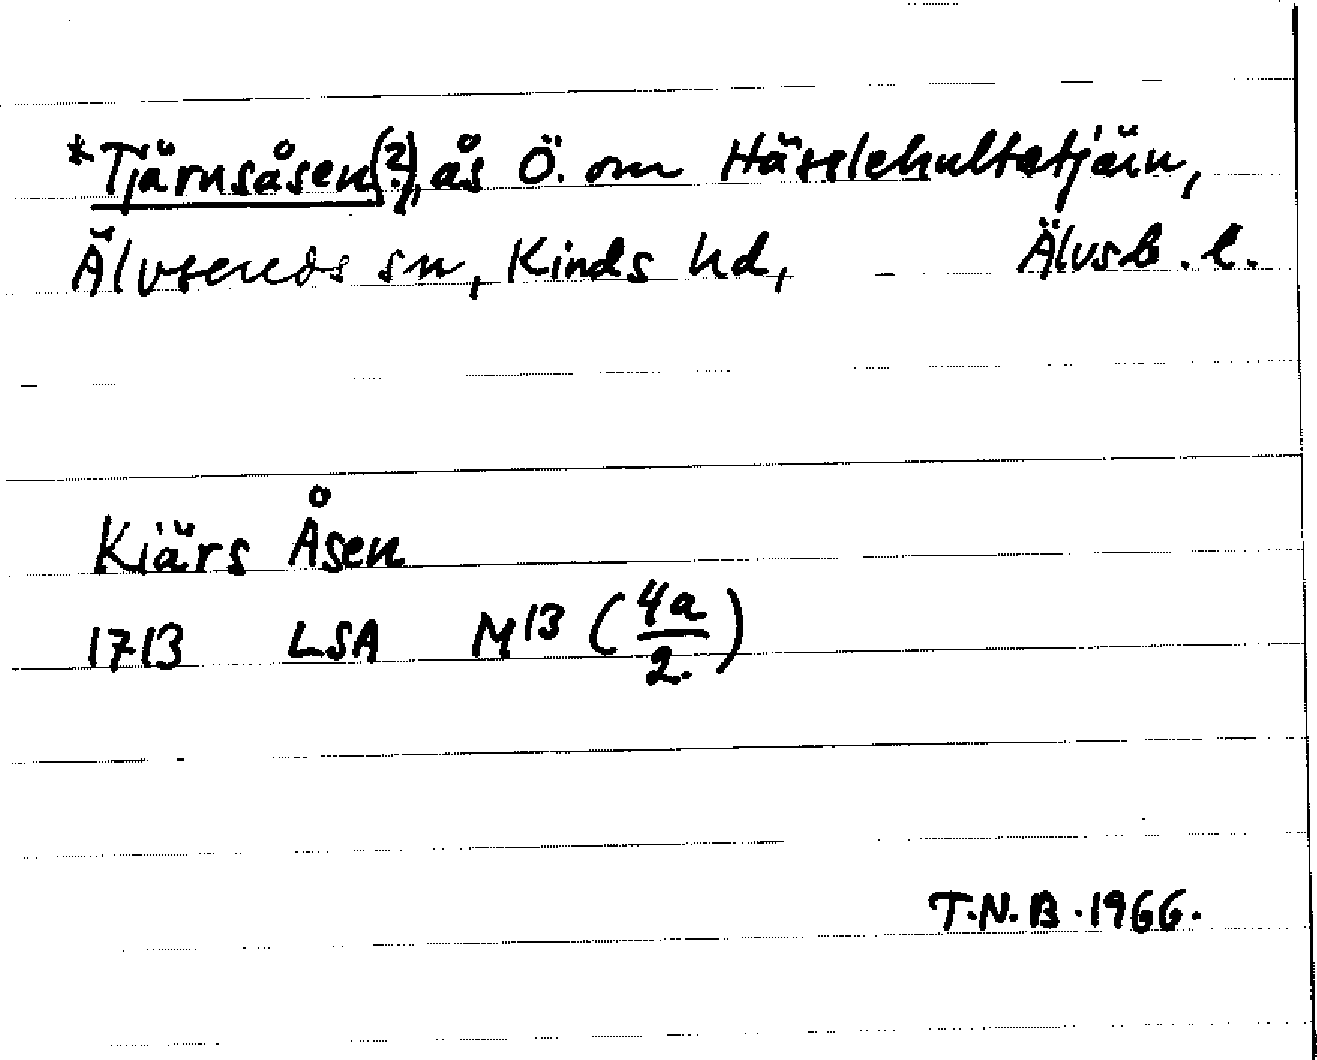 *Tjärnsåsen(?), ås Ö. om Hässlehultstjärn,
Älvsereds sn, Kinds hd, Älvsb. l.
Kiärs Åsen
1713 LSA M13 (4a/2.)
T.N.B. 1966.